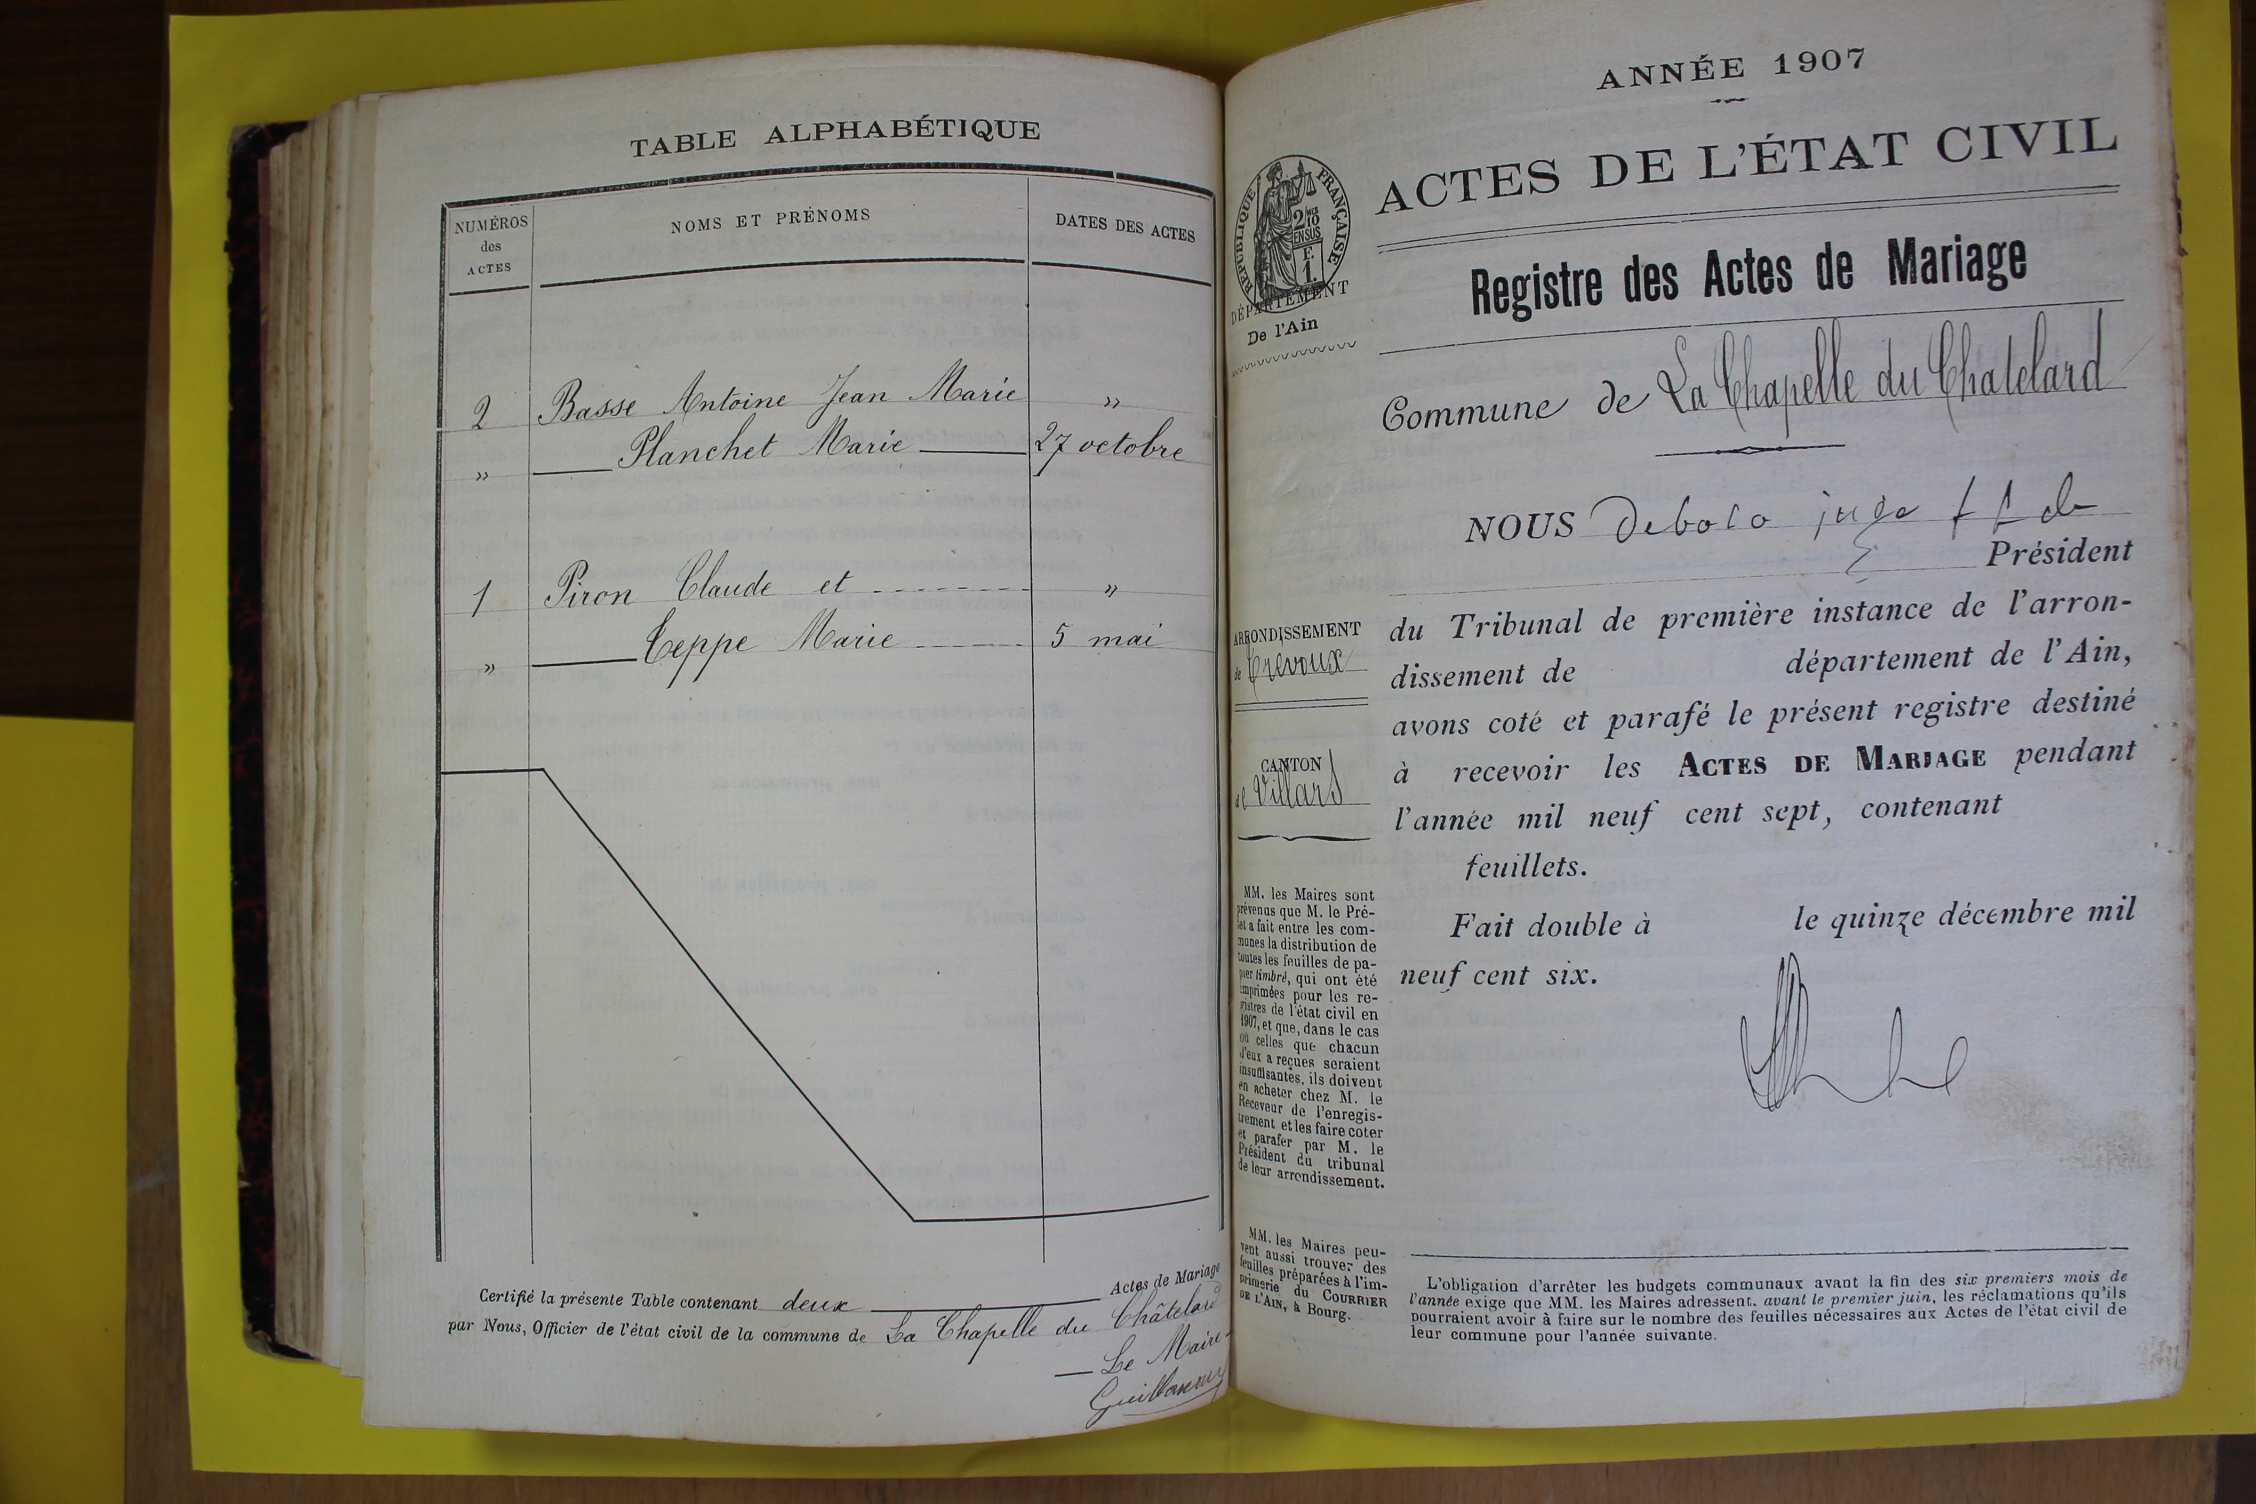 TABLE ALPHABÉTIQUE
NUMÉROS
des
ACTES
NOMS ET PRÉNOMS
DATES DES ACTES
2 Basse Antoine Jean Marie "
" Planchet Marie 27 octobre
1 Piron Claude et "
" Teppe Marie 5 mai
Certifié la présente Table contenant deux Actes de Mariage
par Nous, Officier de l'état civil de la commune de La Chapelle du Châtelard
Le Maire
ANNÉE 1907
ACTES DE L'ÉTAT CIVIL
RÉPUBLIQUE FRANÇAISE
2 10
EN SUS
F.
1.
DÉPARTEMENT
De l'Ain
Registre des Actes de Mariage
Commune de La Chapelle du Chatelard
NOUS juge ff de
Président
du Tribunal de première instance de l'arron-
dissement de département de l'Ain,
avons coté et parafé le présent registre destiné
à recevoir les ACTES DE MARIAGE pendant
l'année mil neuf cent sept, contenant
feuillets.
Fait double à le quinze décembre mil
neuf cent six.
ARRONDISSEMENT
de Trévoux
CANTON
de Villars
MM. les Maires sont
prévenus que M. le Pré-
fet a fait entre les com-
munes la distribution de
toutes les feuilles de pa-
pier timbré, qui ont été
imprimées pour les re-
gistres de l'état civil en
1907, et que, dans le cas
où celles que chacun
d'eux a reçues seraient
insuffisantes, ils doivent
en acheter chez M. le
Receveur de l'enregis-
trement et les faire coter
et parafer par M. le
Président du tribunal
de leur arrondissement.
MM. les Maires peu-
vent aussi trouver des
feuilles préparées à l'im-
primerie du COURRIER
DE L'AIN, à Bourg.
L'obligation d'arrêter les budgets communaux avant la fin des six premiers mois de
l'année exige que MM. les Maires adressent, avant le premier juin, les réclamations qu'ils
pourraient avoir à faire sur le nombre des feuilles nécessaires aux Actes de l'état civil de
leur commune pour l'année suivante.